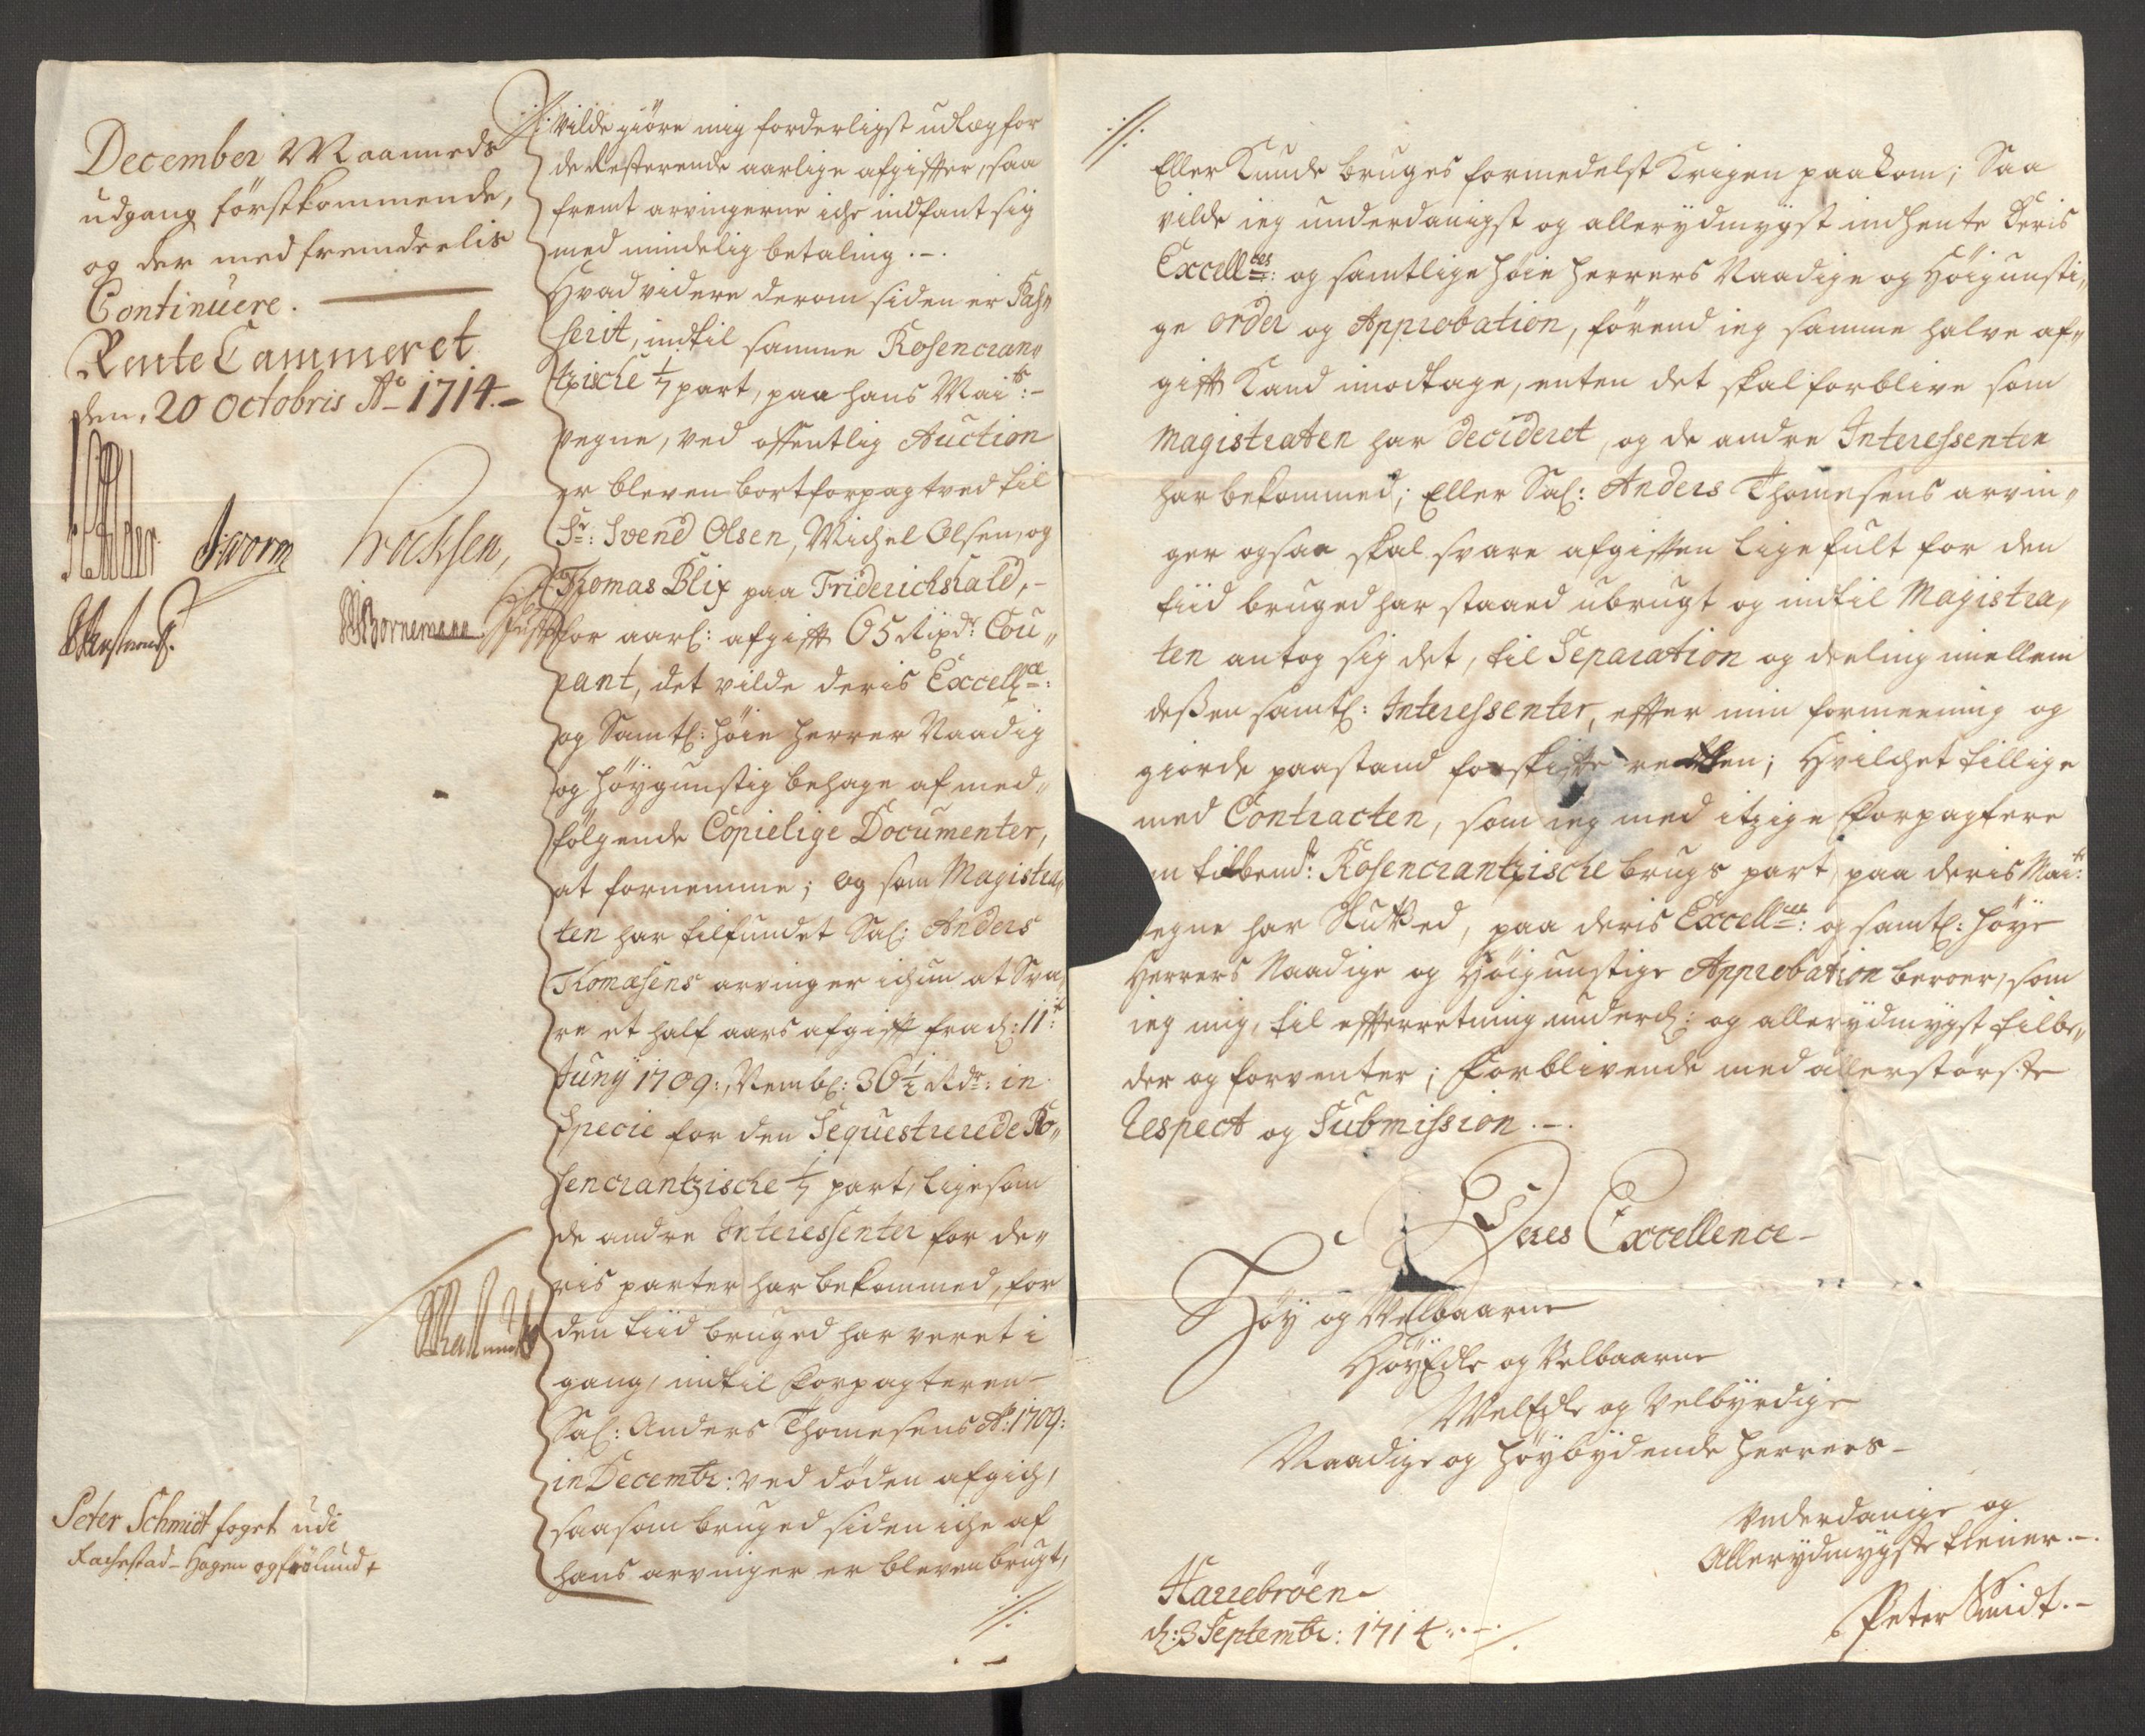 December Maaneds
udgang förstkommende,
og der med fremdeelis
Continuere.
Rente Cammeret
den, 20 Octobris Ao 1714.
J Worm
Bornemann
Peter Schmidt foget udi
Rachestad- Hagen og frölund
vilde giöre mig forderligst udlæg for
de Resterende aarlige afgiffter, saa
fremt arvingerne iche indfant sig
med mindelig betaling.
Hvad videre derom siden er Pas„
serit, indtil samme Rosencran„
tzische 1/7 part, paa hans Mai:ts
vegne, ved offentlig Auction
er bleven bortforpagtved til
Sr: Svend Olsen, Michel Olsen, og
Thomas Blix paa Friderichshald,
for aarl: afgifft 65 Rixdr Cou„
rant, det vilde deris Excell:ce
og Samtl: höie herrer Naadig
og höygunstig behage af med„
fölgende Copielige Documenter,
at fornemme; og som Magistra„
ten har tilfundet Sal: Anders
Thomæsens arvinger ichun at Sva„
re et half aars afgifft fra d: 11t:
Juny 1709:, Nembl: 36½ Rdr: in
Specie for den Sequestrerede Ro„
sencrantzische 1/7 part, ligesom
de andre Interessenter for de„
ris parter har bekommed, for
den tiid bruged har veret i
gang, indtil Forpagteren
Sal: Anders Thomesens Ao: 1709:
in Decembr: ved döden afgich,
saasom bruged siden iche af
hans arvinger er bleven brugt,
://:
://:
Eller Kunde bruges formedelst Krigen paakom; Saa
vilde ieg underdanigst og allerydmygst indhente Deris
Excell:ces: og samtlige höie herrers Naadige og Höigunsti„
ge order og Approbation, förend ieg samme halve af„
gifft Kand imodtage, enten det skal forblive som
Magistraten har decideret, og de andre Interessenter
har bekommed; Eller Sal: Anders Thomesens arvin„
ger ogsaa skal svare afgifften lige fult for den
tiid bruged har staaed ubrugt og indtil Magistra„
ten antog sig det, til Separation og deeling imellem
dessen samtl: Interessenter, effter min formeening og
giorde paastand for skiffte retten; Hvilchet tillige
med Contracten, som ieg med itzige Forpagtere
Rosencrantzische brugs part paa deris Mai:ts
egne har Slutted, paa deris Excell:ces: og samtl: höye
Herrers Naadige og Höigunstige Approbation beroer, som
ieg mig, til effterretning underd: og allerydmygst, tilbe„
der og forventer; Forblivende med allerstörste
Respect og Submission.
Deres Excellence
Höy og Velbaarne
HöyEdle og Velbaarne
WelEdle og Velbyrdige
Naadige og höybydende Herrers
Underdanige og
Allerydmygste tiener
Peter Smidt.
Harrebröen
d: 3 Septembr: 1714